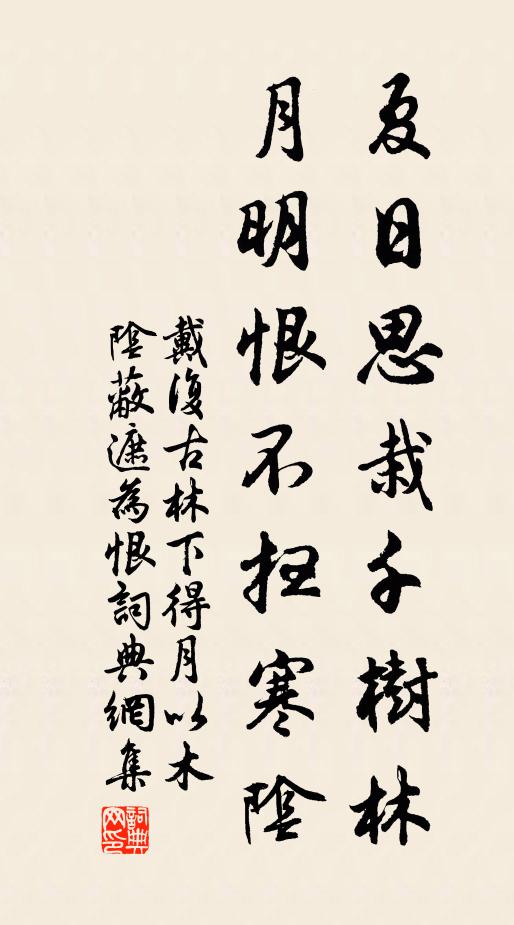 夏日思栽千樹林
月明恨不扫寒陰
戴復古林下得月以木
陰蔽遮為恨詞典網集
詞典
网印